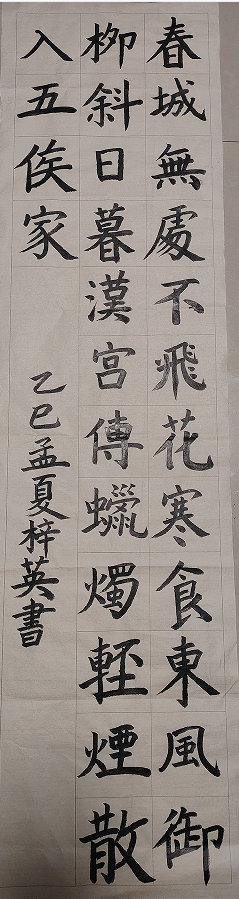 春城無處不飛花寒食東風御
栁斜日暮漢宮傳蠟燭輕煙散
入五侯家
乙巳孟夏梓英書